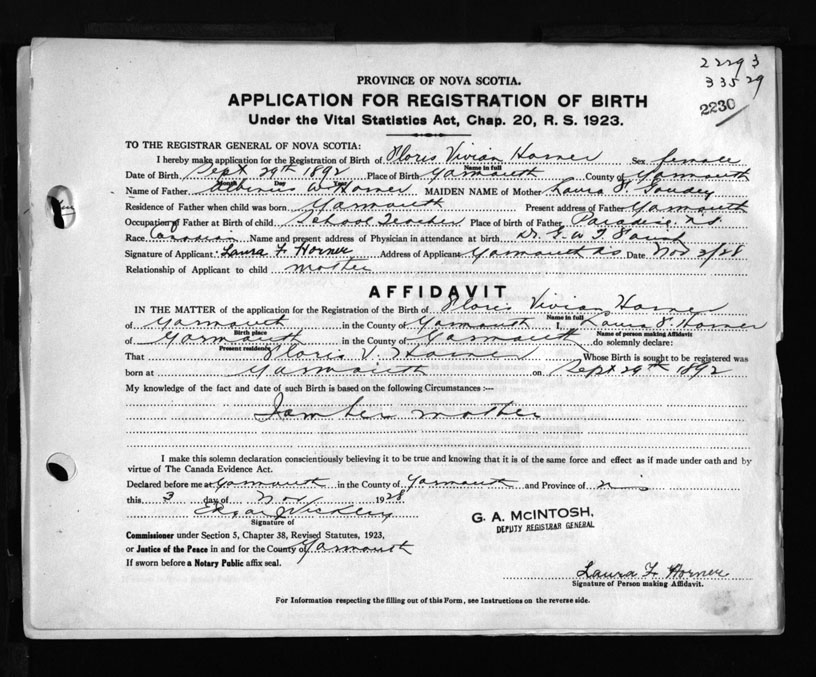 2229 3
335 29
2230
PROVINCE OF NOVA SCOTIA.
APPLICATION FOR REGISTRATION OF BIRTH
Under the Vital Statistics Act, Chap. 20, R. S. 1923.
TO THE REGISTRAR GENERAL OF NOVA SCOTIA:
I hereby make application for the Registration of Birth of Floris Vivian Horner Sex female
Name in full
Date of Birth Sept 29th 1892 Place of Birth Yarmouth County of Yarmouth
Month Day Year
Name of Father W Horner MAIDEN NAME of Mother Laura F. Goudey
Residence of Father when child was born Yarmouth Present address of Father Yarmouth
Occupation of Father at Birth of child School Teacher Place of birth of Father Paradise, N.S.
Race Canadian Name and present address of Physician in attendance at birth Dr.
Signature of Applicant Laura F. Horner Address of Applicant Yarmouth N.S. Date Nov 3/28
Relationship of Applicant to child mother
AFFIDAVIT
IN THE MATTER of the application for the Registration of the Birth of Floris Vivian Horner
Name in full
of Yarmouth in the County of Yarmouth I, Laura F. Horner
Birth place Name of person making Affidavit
of Yarmouth in the County of Yarmouth do solemnly declare:
Present residence
That Floris V. Horner Whose Birth is sought to be registered was
born at Yarmouth on Sept 29th 1892
My knowledge of the fact and date of such Birth is based on the following Circumstances :—
I am her mother
I make this solemn declaration conscientiously believing it to be true and knowing that it is of the same force and effect as if made under oath and by
virtue of The Canada Evidence Act.
Declared before me at Yarmouth in the County of Yarmouth and Province of N.S.
this 3 day of Nov 1928
Edgar
Signature of
G. A. McINTOSH,
DEPUTY REGISTRAR GENERAL
Commissioner under Section 5, Chapter 38, Revised Statutes, 1923,
or Justice of the Peace in and for the County of Yarmouth
If sworn before a Notary Public affix seal.
Laura F. Horner
Signature of Person making Affidavit.
For Information respecting the filling out of this Form, see Instructions on the reverse side.